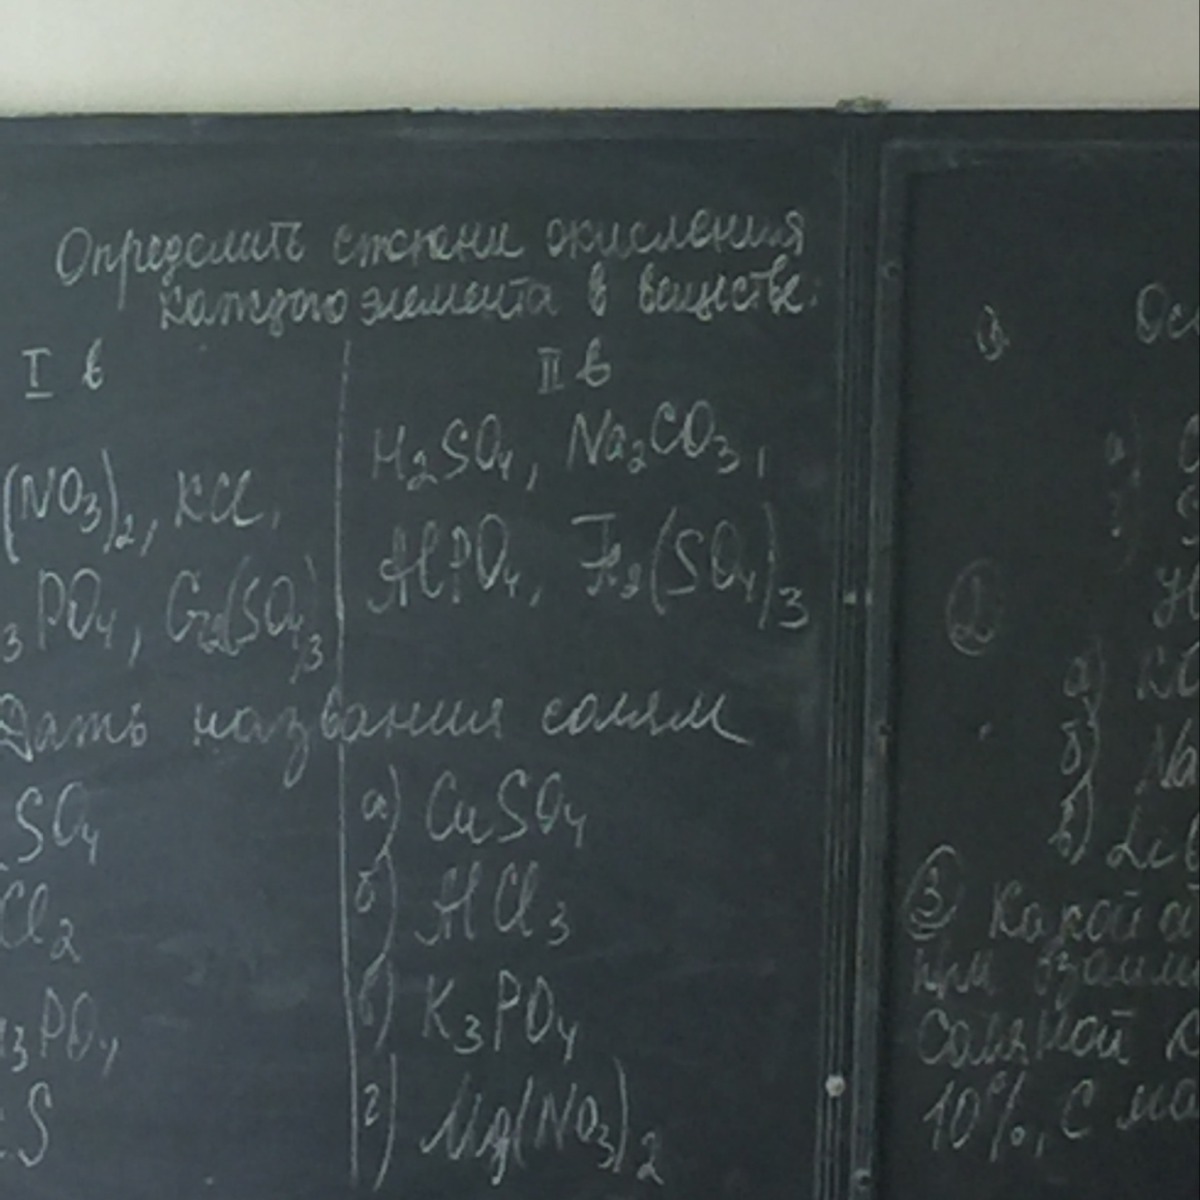 Определить степени окисления
каждого элемента в веществе:
I в
(NO₃)₂, KCl,
₃PO₄, Cr₂(SO₄)₃
II в
H₂SO₄, Na₂CO₃,
AlPO₄, Fe₂(SO₄)₃
Дать названия солям
SO₄
Cl₂
₃PO₄
S
а) CuSO₄
б) AlCl₃
в) K₃PO₄
г) Mg(NO₃)₂
Ос
а)
②
а)
б) Na
в)
③ Какой
при взаим
соляной к
10%, с ма